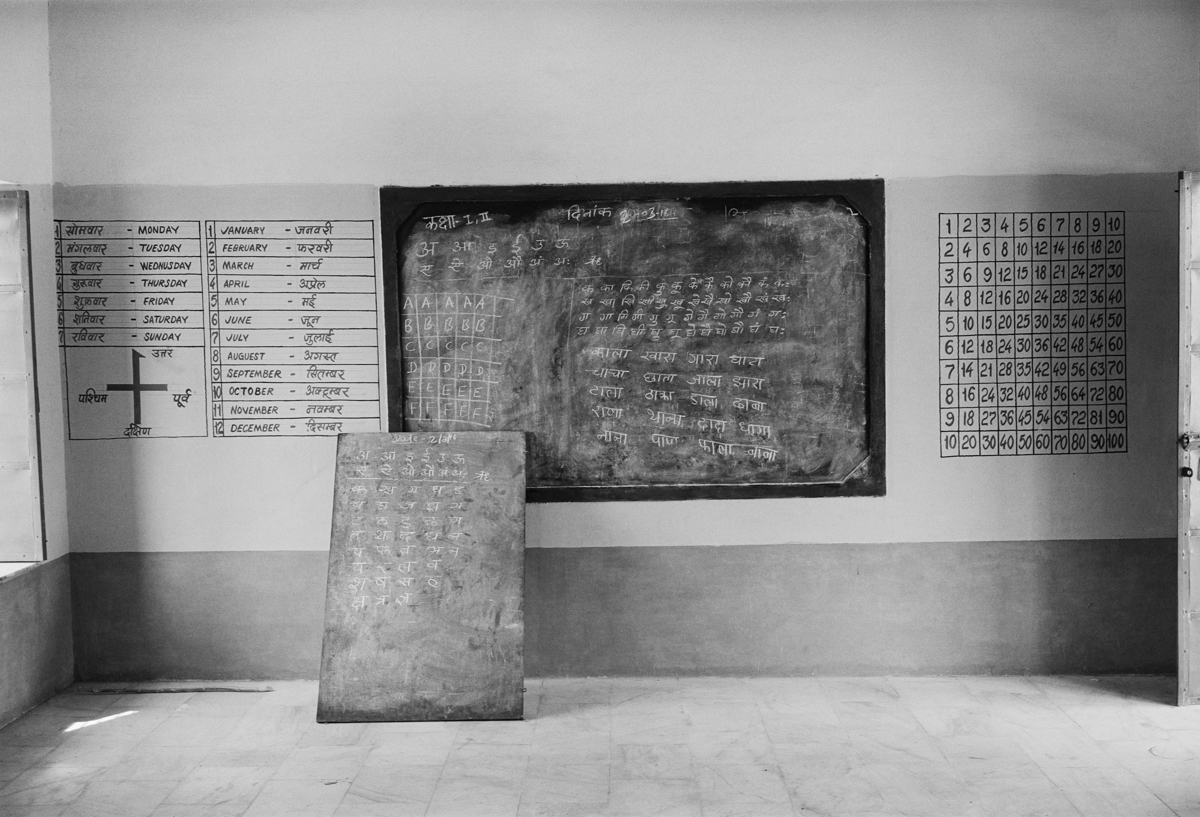 1 सोमवार - MONDAY
2 मंगलवार - TUESDAY
3 बुधवार - WEDNUSDAY
4 गुरूवार - THURSDAY
5 शुक्रवार - FRIDAY
6 शनिवार - SATURDAY
7 रविवार - SUNDAY
उत्तर
पश्चिम पूर्व
दक्षिण
1 JANUARY - जनवरी
2 FEBRUARY - फरवरी
3 MARCH - मार्च
4 APRIL - अप्रेल
5 MAY - मई
6 JUNE - जून
7 JULY - जुलाई
8 AUGUEST - अगस्त
9 SEPTEMBER - सितम्बर
10 OCTOBER - अक्टूम्बर
11 NOVEMBER - नवम्बर
12 DECEMBER - दिसम्बर
कक्षा- I, II दिनांक
अ आ इ ई उ ऊ
ए ऐ ओ औ अं अः ऋ
A A A A A
B B B B B
C C C C C
D D D D D
E E E E E
F F F F
क का कि की कु कू के कै को कौ कं कः
ख खा खि खी खु खू खे खै खो खौ खं खः
ग गा गि गी गु गू गे गै गो गौ गं गः
घ घा घि घी घु घू घे घै घो घौ घं घः
काला खारा गारा घारा
चाचा छाता जाला झारा
टाला ठाका डाला ढाबा
राणा थाना दारा धागा
नाना पान फाला बाबा
अ आ इ ई उ ऊ
ए ऐ ओ औ अं अः ऋ
क ख ग घ ङ
श ष स ह
क्ष त्र ज्ञ
1 2 3 4 5 6 7 8 9 10
2 4 6 8 10 12 14 16 18 20
3 6 9 12 15 18 21 24 27 30
4 8 12 16 20 24 28 32 36 40
5 10 15 20 25 30 35 40 45 50
6 12 18 24 30 36 42 48 54 60
7 14 21 28 35 42 49 56 63 70
8 16 24 32 40 48 56 64 72 80
9 18 27 36 45 54 63 72 81 90
10 20 30 40 50 60 70 80 90 100